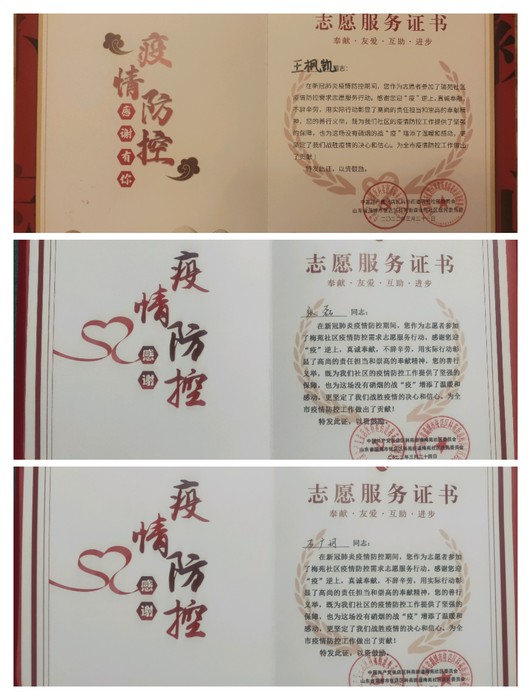 疫情防控
感谢有你
志愿服务证书
奉献·友爱·互助·进步
王枫凯同志：
在新冠肺炎疫情防控期间，您作为志愿者参加了
疫情防控需求志愿服务行动。感谢您迎“疫”逆上，真诚奉献、
不辞辛劳，用实际行动彰显了高尚的责任担当和崇高的奉献精
神，您的善行义举，既为我们社区的疫情防控工作提供了坚强
的保障，也为这场没有硝烟的战“疫”增添了温暖和感动，更坚
定了我们战胜疫情的决心和信心。为全市疫情防控工作做出
了贡献！
特发此证，以资鼓励。
二〇二二年三月二十
疫情防控
感谢
志愿服务证书
奉献·友爱·互助·进步
同志：
在新冠肺炎疫情防控期间，您作为志愿者参加
了梅苑社区疫情防控需求志愿服务行动。感谢您迎
“疫”逆上，真诚奉献、不辞辛劳，用实际行动彰
显了高尚的责任担当和崇高的奉献精神，您的善行
义举，既为我们社区的疫情防控工作提供了坚强的
保障，也为这场没有硝烟的战“疫”增添了温暖和
感动，更坚定了我们战胜疫情的决心和信心。为全
市疫情防控工作做出了贡献！
特发此证，以资鼓励。
疫情防控
感谢
志愿服务证书
奉献·友爱·互助·进步
同志：
在新冠肺炎疫情防控期间，您作为志愿者参加
了梅苑社区疫情防控需求志愿服务行动。感谢您迎
“疫”逆上，真诚奉献、不辞辛劳，用实际行动彰
显了高尚的责任担当和崇高的奉献精神，您的善行
义举，既为我们社区的疫情防控工作提供了坚强的
保障，也为这场没有硝烟的战“疫”增添了温暖和
感动，更坚定了我们战胜疫情的决心和信心。为全
市疫情防控工作做出了贡献！
特发此证，以资鼓励。